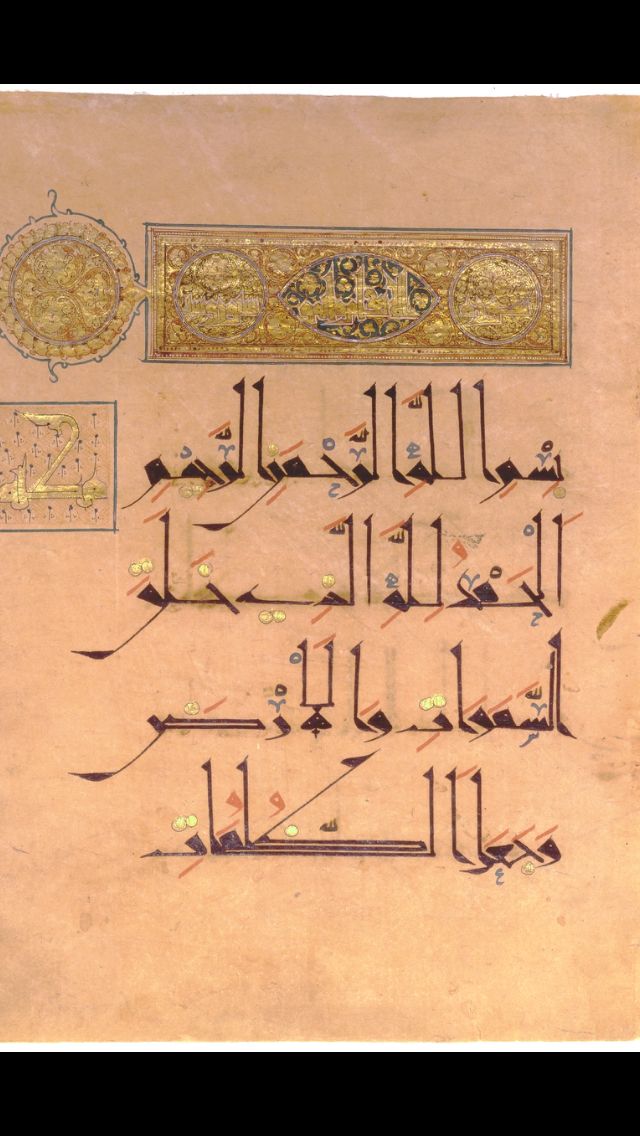 بِسْمِ اللَّهِ الرَّحْمَٰنِ الرَّحِيمِ
اَلْحَمْدُ لِلَّهِ الَّذِي خَلَقَ
السَّمَوَاتِ وَالْأَرْضَ
وَجَعَلَ الظُّلُمَاتِ